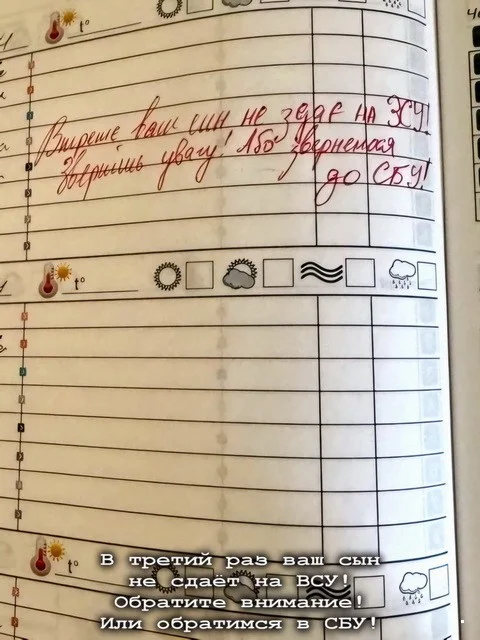 t°
Втретє ваш син не здає на ЗСУ!
Зверніть увагу! Або звернемося
до СБУ!
t°
t°
В третий раз ваш сын
не сдаёт на ВСУ!
Обратите внимание!
Или обратимся в СБУ!